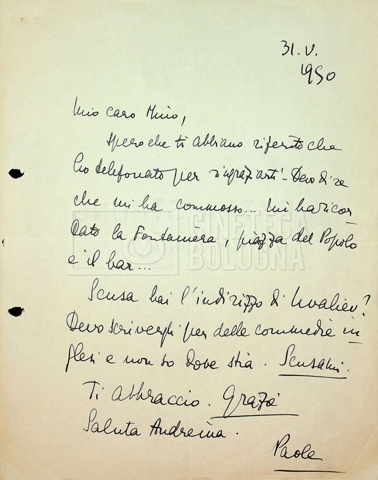 31. V.
1950
Mio caro Mino,
spero che ti abbiano riferito che
ho telefonato per ringraziarti - Devo dire
che mi ha commosso... mi ha ricor
dato la Fontanèra, piazza del Popolo
e il bar...
Scusa hai l'indirizzo di ?
Devo scrivergli per delle commedie in
glesi e non so dove stia. Scusami.
Ti abbraccio. Grazie
Saluta Andreina.
Paola
CINETECA
BOLOGNA